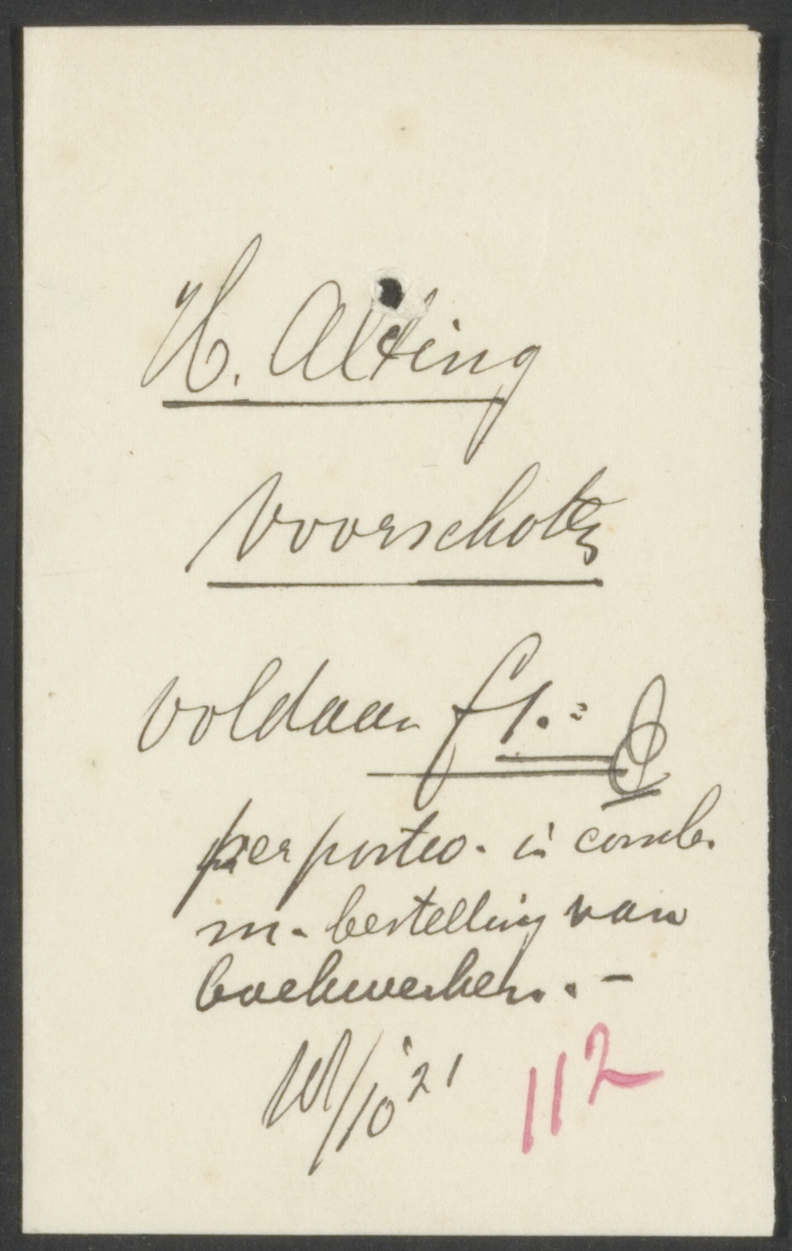 H. Alting
Voorschoten
voldaan f 1.=
per postw. in comb.
m. bestelling van
boekwerken. . –
/10 '21 112